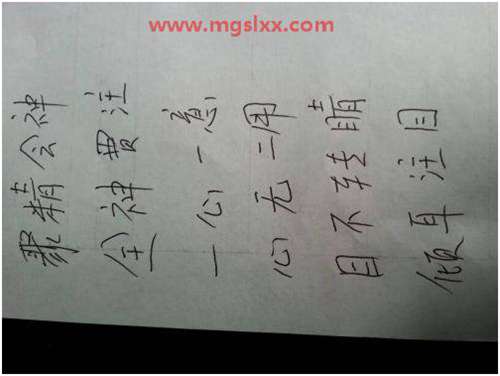 www.mgslxx.com
聚精会神
全神贯注
一心一意
心无二用
目不转睛
倾耳注目